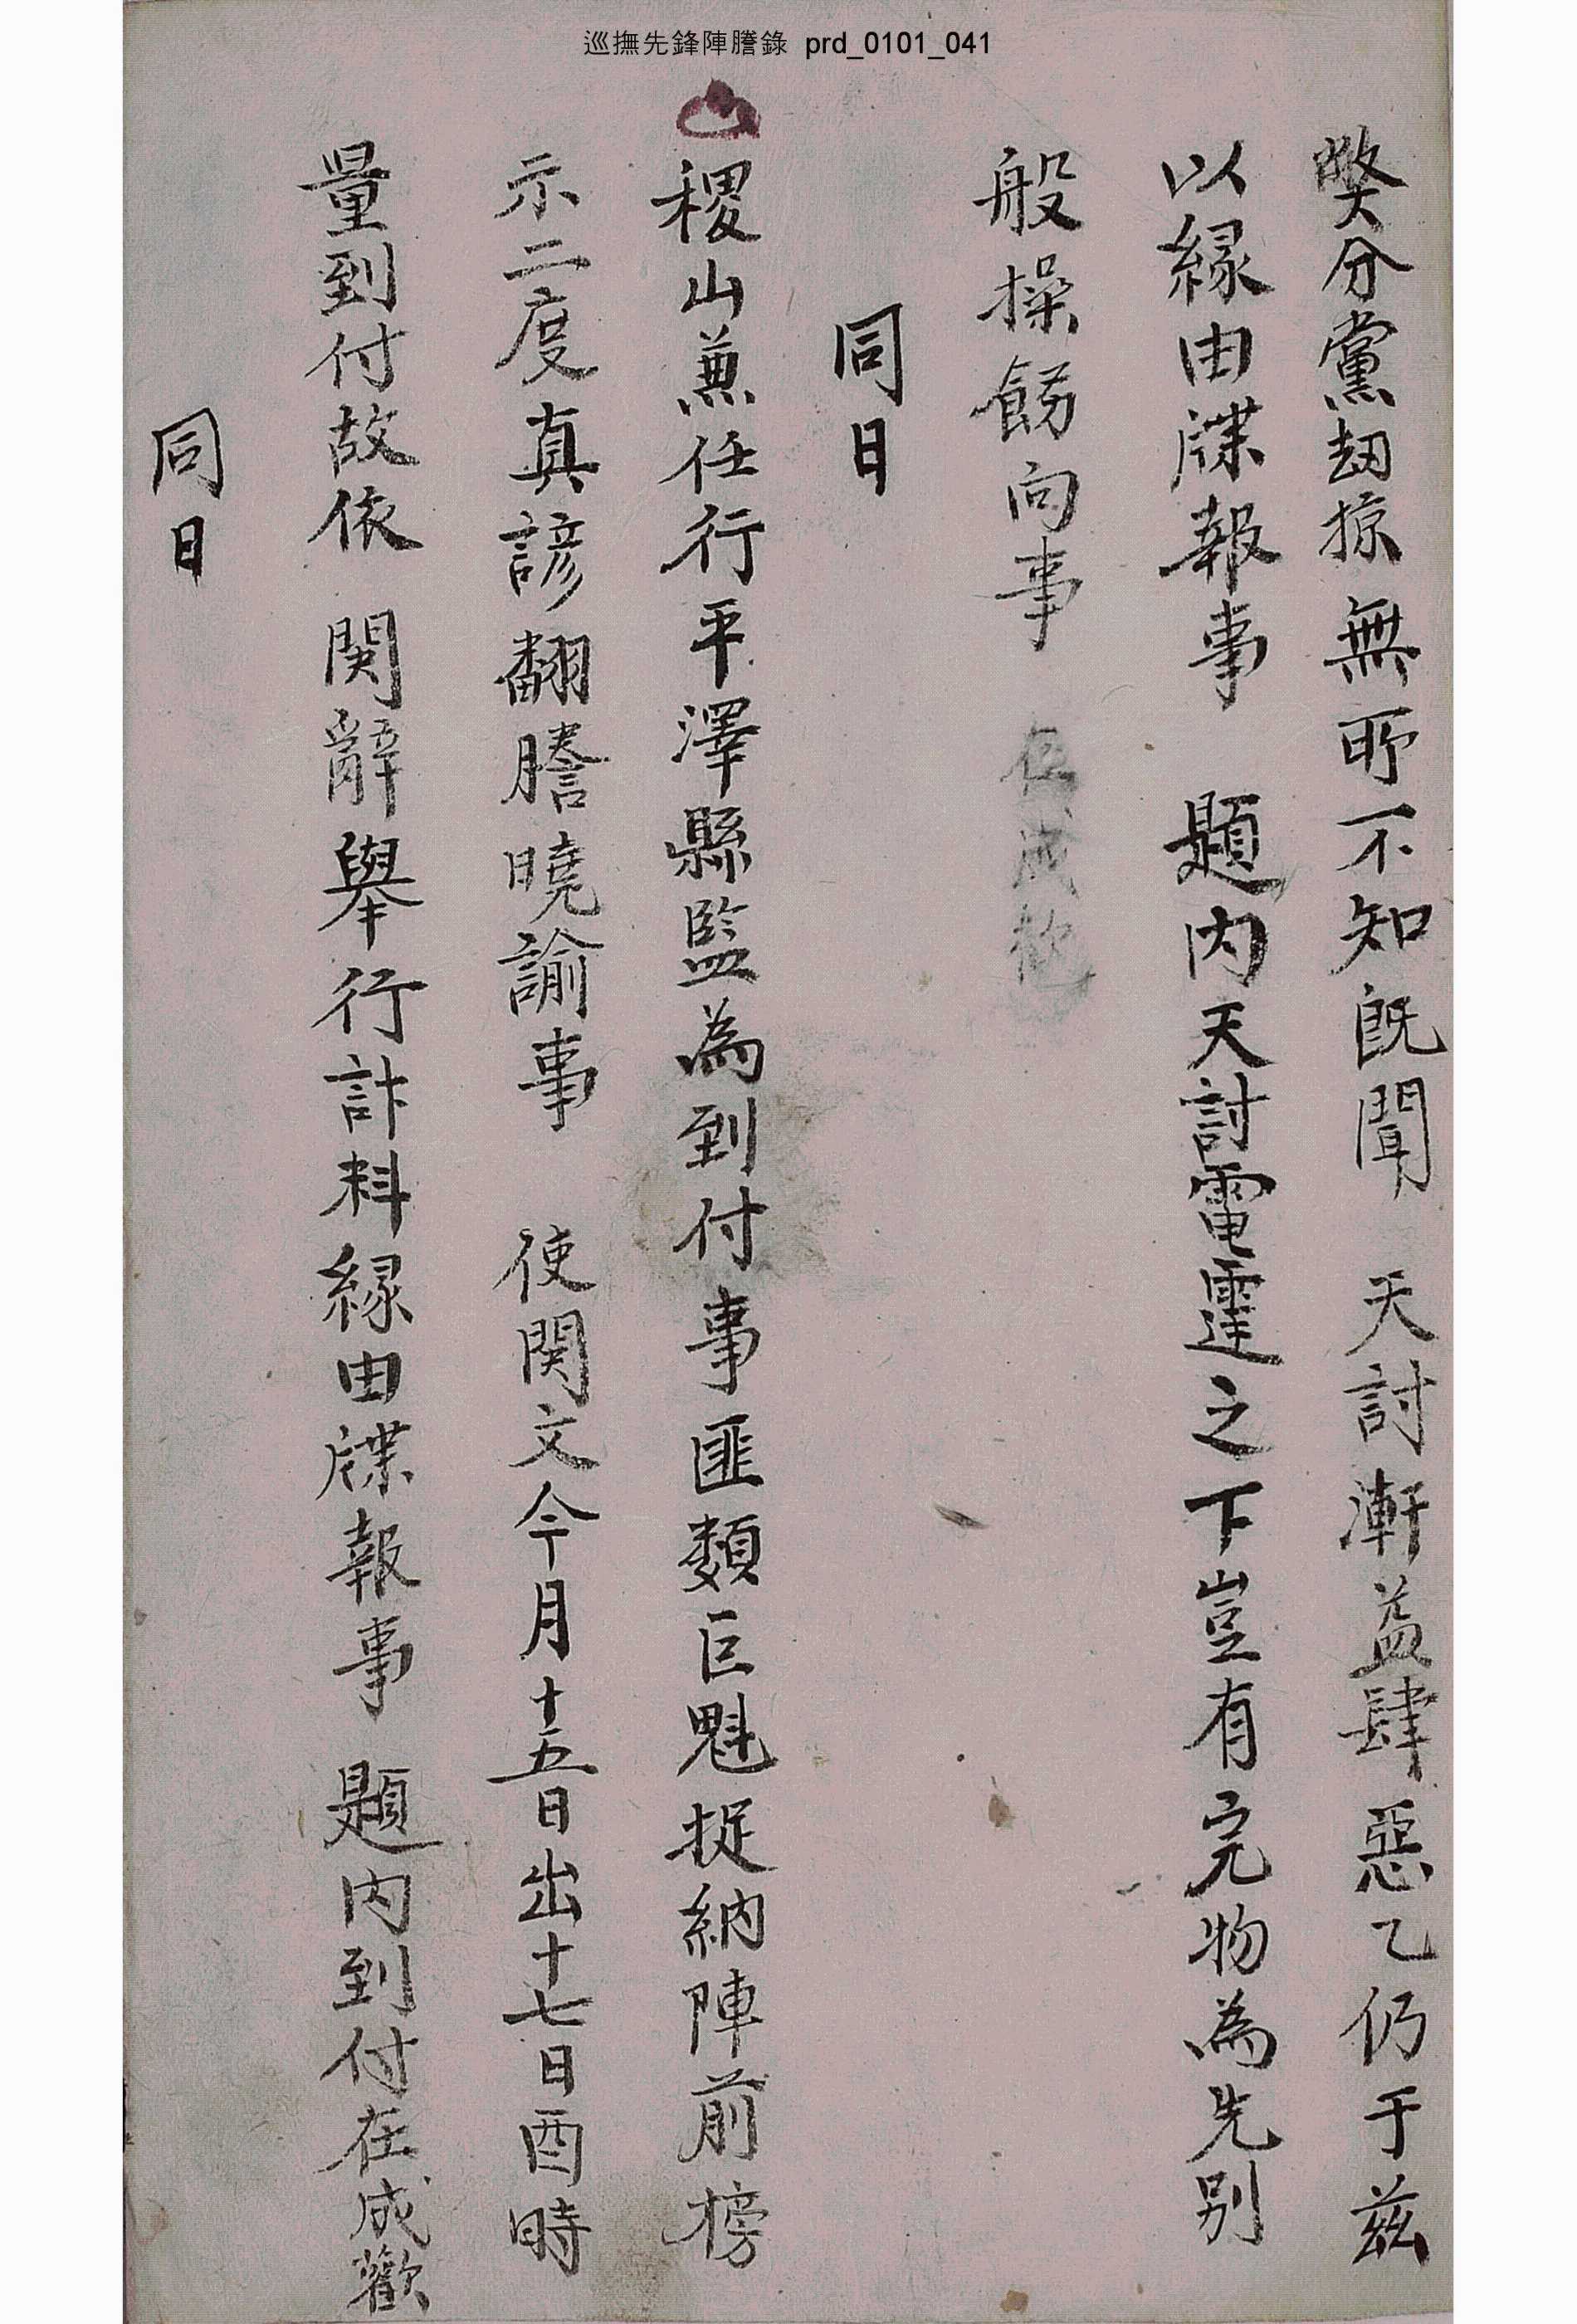 巡撫先鋒陣謄錄 prd_0101_041
獘分黨刼掠無所不知旣聞 天討漸益肆惡乙仍于茲
以緣由牒報事 題內天討電霆之下豈有完物為先別
般操飭向事 在成歡
同日
稷山兼任行平澤縣監為到付事匪類巨魁捉納陣前榜
示二度真諺翻謄曉諭事 使関文今月十五日出十七日酉時
量到付故依 関辭擧行計料緣由牒報事 題內到付在成歡
同日